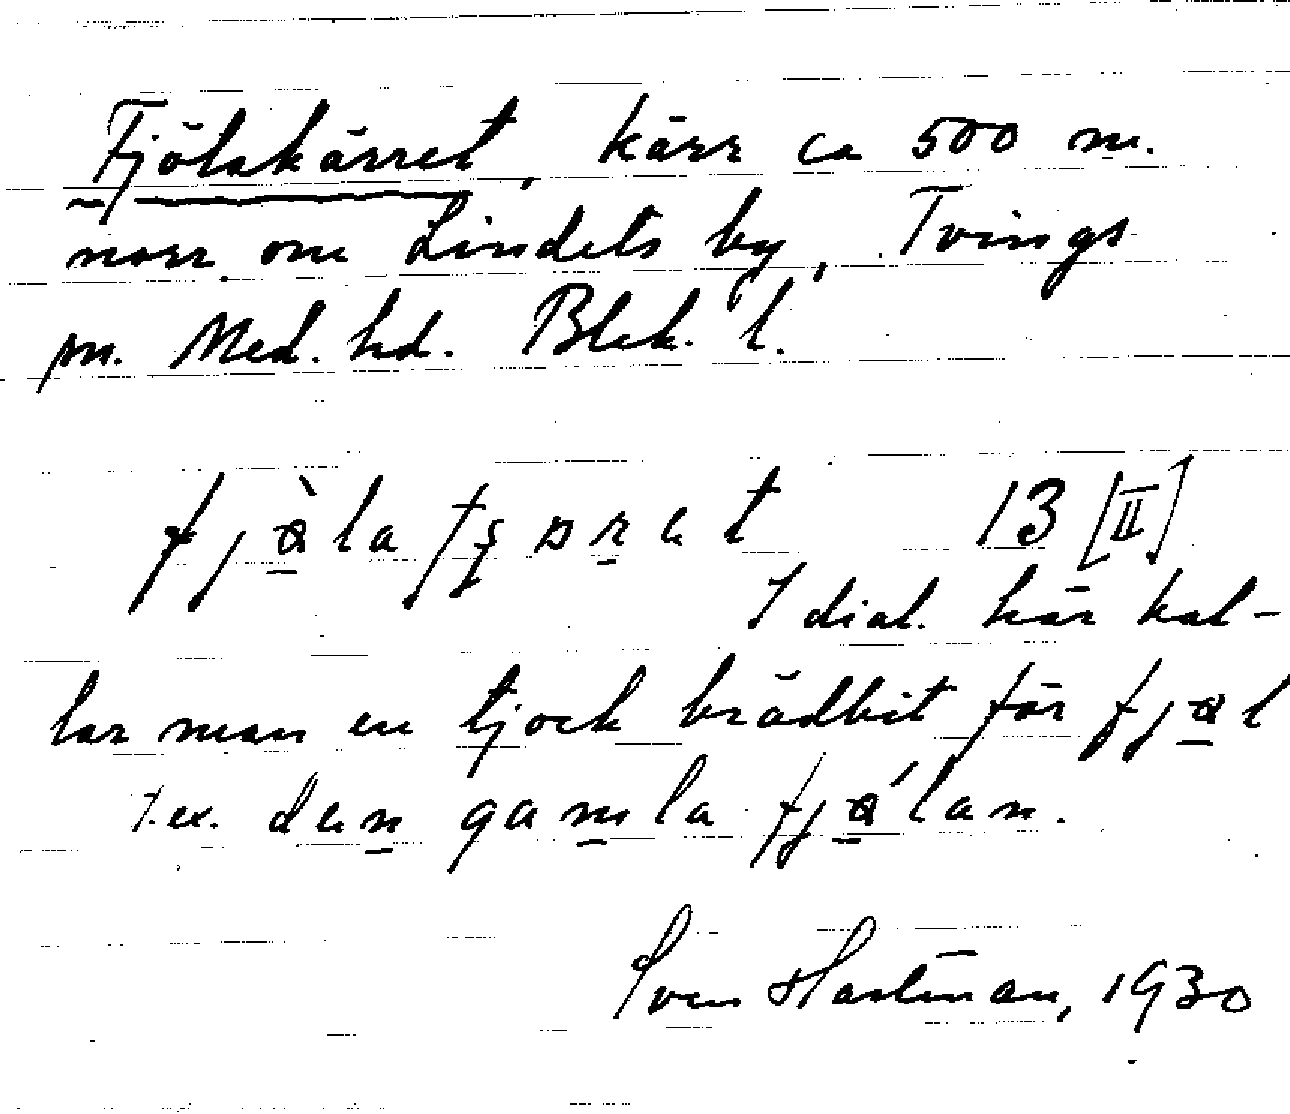 Fjölakärret, kärr ca 500 m.
norr om Lindets by, Tvings
sn. Med. hd. Blek. l.
13 [II]
I dial. här kal-
lar man en tjock brädbit för
t.ex. den gamla
Sven Hartman, 1930